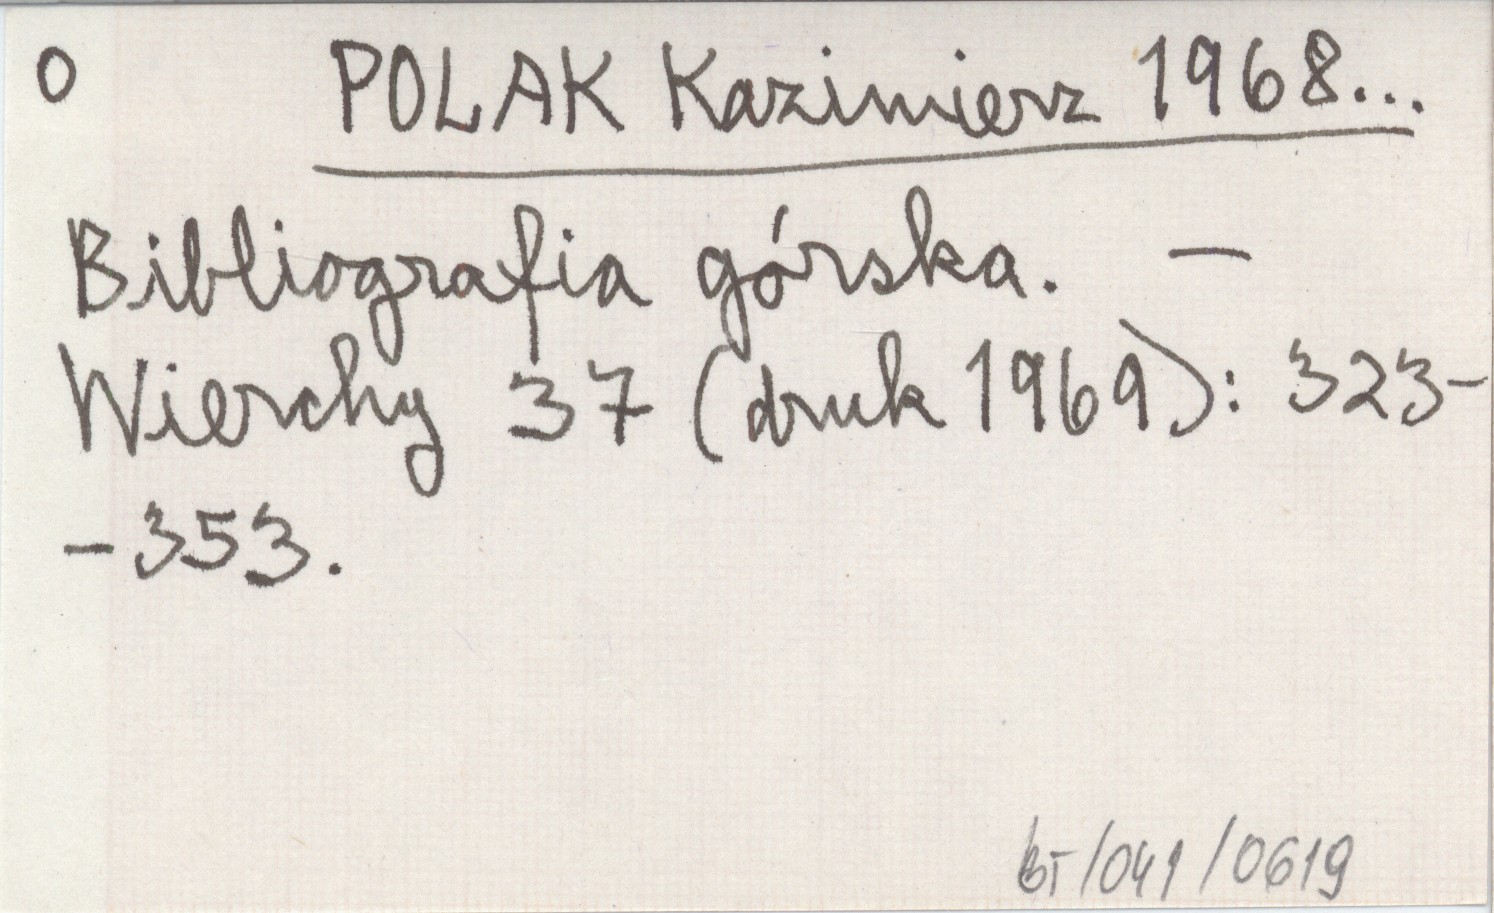 O POLAK Kazimierz 1968...
Bibliografia górska. —
Wierchy 37 (druk 1969): 323-
-353.
BT/041/0619